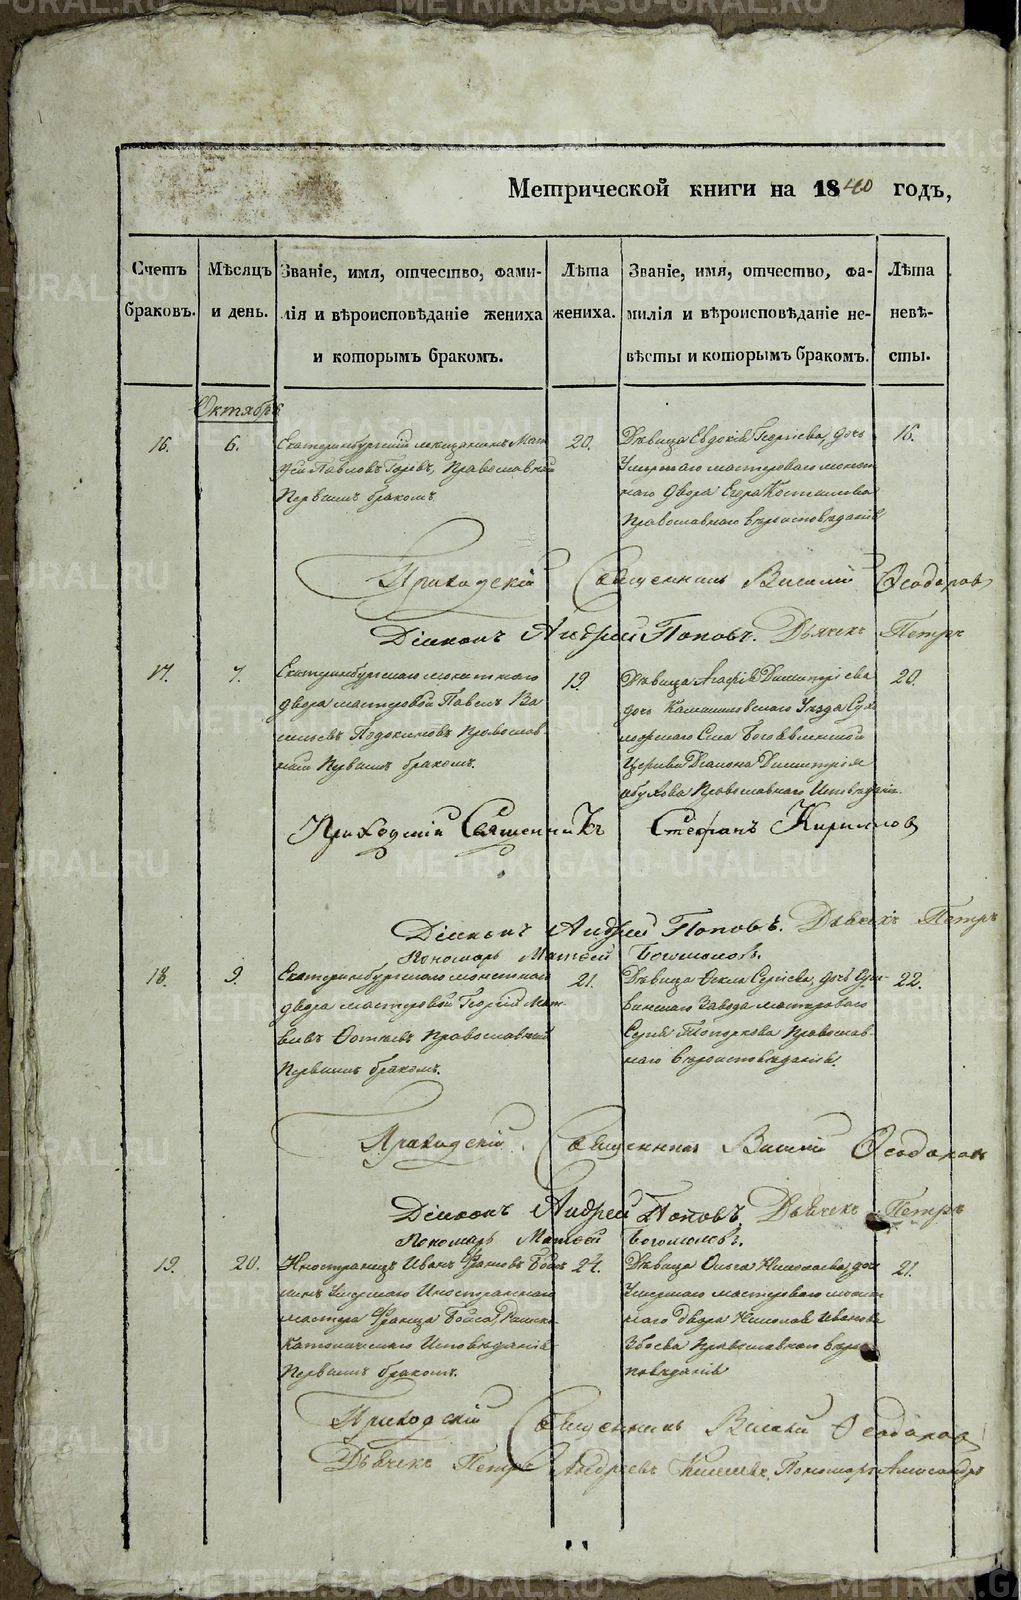 Метрической книги на 1840 годъ,
Счетъ браковъ.
Мѣсяцъ и день.
Званіе, имя, отчество, фами-
лія и вѣроисповѣданіе жениха
и которымъ бракомъ.
Лѣта жениха.
Званіе, имя, отчество, фа-
милія и вѣроисповѣданіе не-
вѣсты и которымъ бракомъ.
Лѣта невѣ-
сты.
Октябрь
16.
6.
Екатеринбургскій мещанинъ Мат
Павловъ Православный
Первымъ бракомъ
20.
Дѣвица Евдокія Георгіева, дочь
Умершаго мастероваго монет
наго двора Егора Костылева
Православнаго вѣроисповѣданія
16.
Приходскій Священникъ Василій Ѳеодоровъ
Діаконъ Андрей Поповъ. Дьячекъ Петръ
17.
7.
Екатеринбургскаго монетнаго
двора мастеровой Павелъ Ва
сильевъ Православ-
ный Первымъ бракомъ.
19.
Дѣвица Агафія Димитріева
дочь Камышловскаго Уѣзда Сух
ложскаго Села Богоявленской
Церкви Діакона Димитрія
Православнаго Исповѣданія.
20.
Приходскій Священникъ Стефанъ Кирилловъ
Діаконъ Андрей Поповъ. Дьячекъ Петръ
Пономарь Матѳей Богомоловъ.
18.
9.
Екатеринбургскаго монетнаго
двора мастеровой Георгій Мат
вѣевъ Православный
Первымъ бракомъ.
21.
Дѣвица Ѳекла Сергіева, дочь
винскаго Завода мастероваго
Сергія Топоркова Православ-
наго вѣроисповѣданія.
22.
Приходскій Священникъ Василій Ѳеодоровъ
Діаконъ Андрей Поповъ. Дьячекъ Петръ
Пономарь Матѳей Богомоловъ.
19.
20.
Иностранецъ Иванъ Францовъ
Умершаго Иностраннаго
мастера Франца Римско-
Католическаго Исповѣданія
Первымъ бракомъ.
24.
Дѣвица Ольга Николаева, дочь
Умершаго мастероваго монет
наго двора Николая Иванова
Православнаго вѣрои
повѣданія
21.
Приходскій Священникъ Василій Ѳеодоровъ
Дьячекъ Петръ Андреевъ Пономарь Александръ